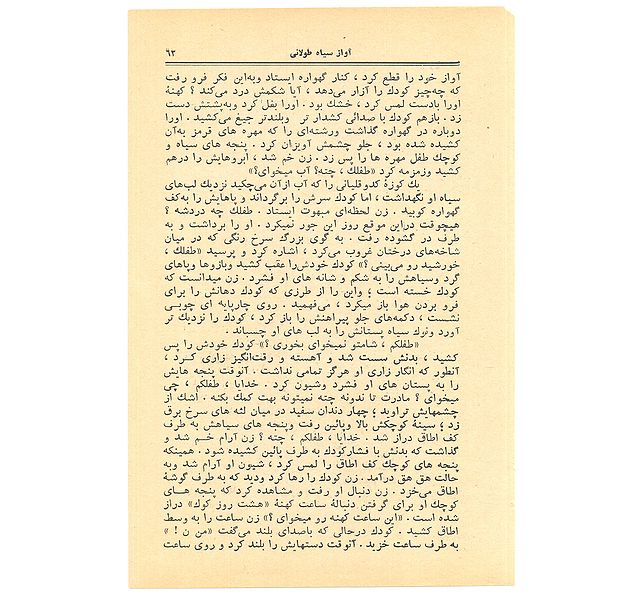 آواز سیاه طولانی ۶۳
آواز خود را قطع کرد ، کنار گهواره ایستاد وبه‌این فکر فرو رفت
که چه‌چیز کودك را آزار می‌دهد ، آیا شکمش درد می‌کند ؟ کهنهٔ
اورا بادست لمس کرد ، خشك بود . اورا بغل کرد وبه‌پشتش دست
زد . بازهم کودك با صدائی کشدار تر وبلندتر جیغ می‌کشید . اورا
دوباره در گهواره گذاشت ورشته‌ای را که مهره های قرمز به‌آن
کشیده شده بود ، جلو چشمش آویزان کرد . پنجه های سیاه و
کوچك طفل مهره ها را پس زد . زن خم شد ، ابروهایش را درهم
کشید وزمزمه کرد «طفلك ، چته؟ آب میخوای؟»
یك کوزهٔ کدوقلیانی را که آب ازآن می‌چکید نزدیك لب‌های
سیاه او نگهداشت ، اما کودك سرش را برگرداند و پاهایش را به‌کف
گهواره کوبید . زن لحظه‌ای مبهوت ایستاد . طفلك چه دردشه ؟
هیچوقت دراین موقع روز این جور نمیکرد . او را برداشت و به
طرف در گشوده رفت . به گوی بزرگ سرخ رنگی که در میان
شاخه‌های درختان غروب می‌کرد ، اشاره کرد و پرسید «طفلك ،
خورشید رو می‌بینی ؟» کودك خودش‌را عقب کشید وبازوها وپاهای
گرد وسیاهش را به شکم و شانه های او فشرد . زن میدانست که
کودك خسته است ؛ واین را از طرزی که کودك دهانش را برای
فرو بردن هوا باز میکرد ، می‌فهمید . روی چارپایه ای چوبی
نشست ، دکمه‌های جلو پیراهنش را باز کرد ، کودك را نزدیك تر
آورد ونوك سیاه پستانش را به لب های او چسباند .
«طفلکم ، شامتو نمیخوای بخوری ؟» کودك خودش را پس
کشید ، بدنش سست شد و آهسته و رقت‌انگیز زاری کرد ،
آنطور که انگار زاری او هرگز تمامی نداشت . آنوقت پنجه هایش
را به پستان های او فشرد وشیون کرد . خدایا ، طفلکم ، چی
میخوای ؟ مادرت تا ندونه چته نمیتونه بهت کمك بکنه . اشك از
چشمهایش تراوید ؛ چهار دندان سفید در میان لثه های سرخ برق
زد ؛ سینهٔ کوچکش بالا وپائین رفت وپنجه های سیاهش به طرف
کف اطاق دراز شد . خدایا ، طفلکم ، چته ؟ زن آرام خم شد و
گذاشت که بدنش با فشارکودك به طرف پائین کشیده شود . همینکه
پنجه های کوچك کف اطاق را لمس کرد ، شیون او آرام شد وبه
حالت هق هق درآمد . زن کودك را رها کرد ودید که به طرف گوشهٔ
اطاق می‌خزد . زن دنبال او رفت و مشاهده کرد که پنجه های
کوچك او برای گرفتن دنبالهٔ ساعت کهنهٔ «هشت روز کوك» دراز
شده است . «این ساعت کهنه رو میخوای ؟» زن ساعت را به وسط
اطاق کشید . کودك درحالی که باصدای بلند می‌گفت «من ن ! »
به طرف ساعت خزید . آنوقت دستهایش را بلند کرد و روی ساعت